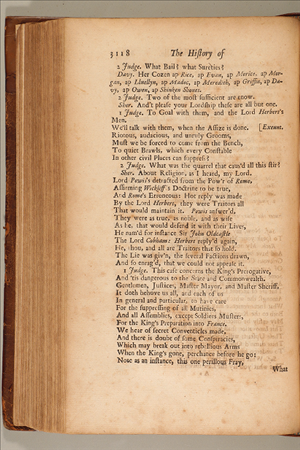 3118 The History of
2 Judge. What Bail? what Sureties?
Davy. Her Cozen ap Rice, ap Evan, ap Morice, ap Mor-
gan, ap Lluellyn, ap Madoc, ap Meredith, ap Griffin, ap Da-
vy, ap Owen, ap Shinken Shones.
2 Judge. Two of the most sufficient are enow.
Sher. And't please your Lordship these are all but one.
1 Judge. To Goal with them, and the Lord Herbert's
Men.
We'll talk with them, when the Assize is done. [Exeunt.
Riotous, audacious, and unruly Grooms,
Must we be forced to come from the Bench,
To quiet Brawls, which every Constable
In other civil Places can suppress?
2 Judge. What was the quarrel that caus'd all this stir?
Sher. About Religion, as I heard, my Lord.
Lord Powis detracted from the Pow'r of Rome,
Affirming Wickliff's Doctrine to be true,
And Rome's Erroneous: Hot reply was made
By the Lord Herbert, they were Traitors all
That would maintain it. Powis answer'd,
They were as true, as noble, and as wise
As he, that would defend it with their Lives,
He nam'd for instance Sir John Oldcastle
The Lord Cobham: Herbert reply'd again,
He, thou, and all are Traitors that so hold.
The Lie was giv'n, the several Factions drawn,
And so enrag'd, that we could not appease it.
1 Judge. This case concerns the King's Prerogative,
And 'tis dangerous to the State and Commonwealth.
Gentlemen, Justices, Master Mayor, and Master Sheriff,
It doth behove us all, and each of us
In general and particular, to have care
For the suppressing of all Mutinies,
And all Assemblies, except Soldiers Musters,
For the King's Preparation into France.
We hear of secret Conventicles made,
And there is doubt of some Conspiracies,
Which may break out into rebellious Arms
When the King's gone, perchance before he go:
Note as an instance, this one perillous Fray,
What